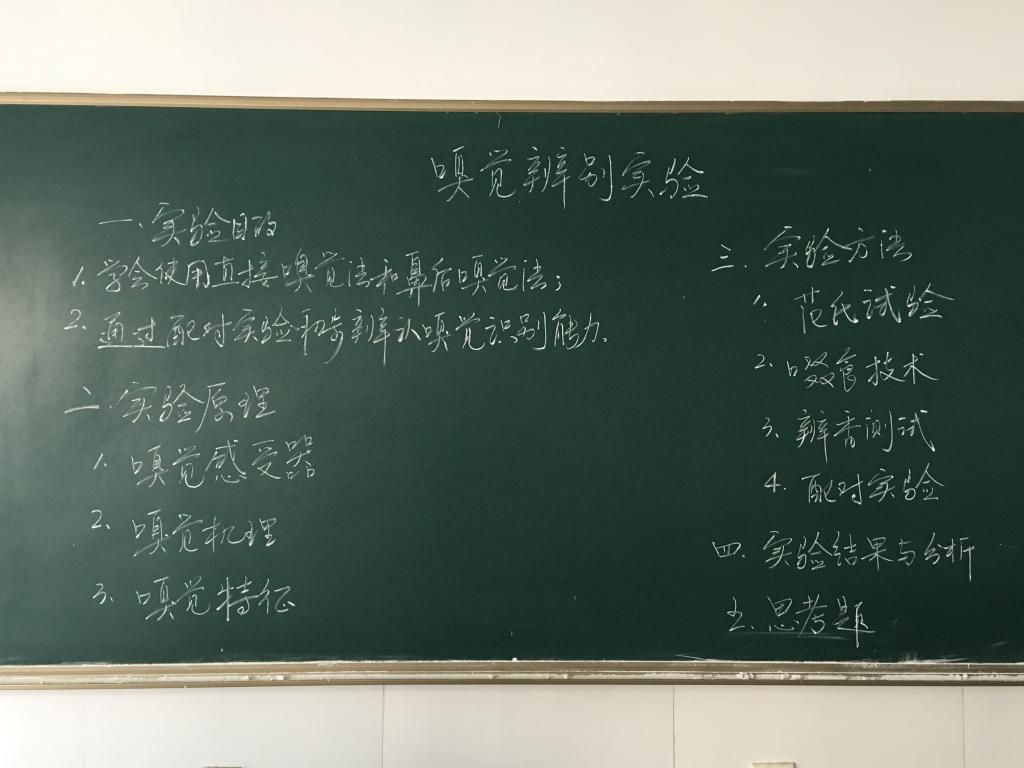 嗅觉辨别实验
一.实验目的
1.学会使用直接嗅觉法和鼻后嗅觉法;
2.通过配对实验初步辨认嗅觉识别能力.
二.实验原理
1.嗅觉感受器
2.嗅觉机理
3.嗅觉特征
三.实验方法
1.范氏试验
2.啜食技术
3.辨香测试
4.配对实验
四.实验结果与分析
五.思考题